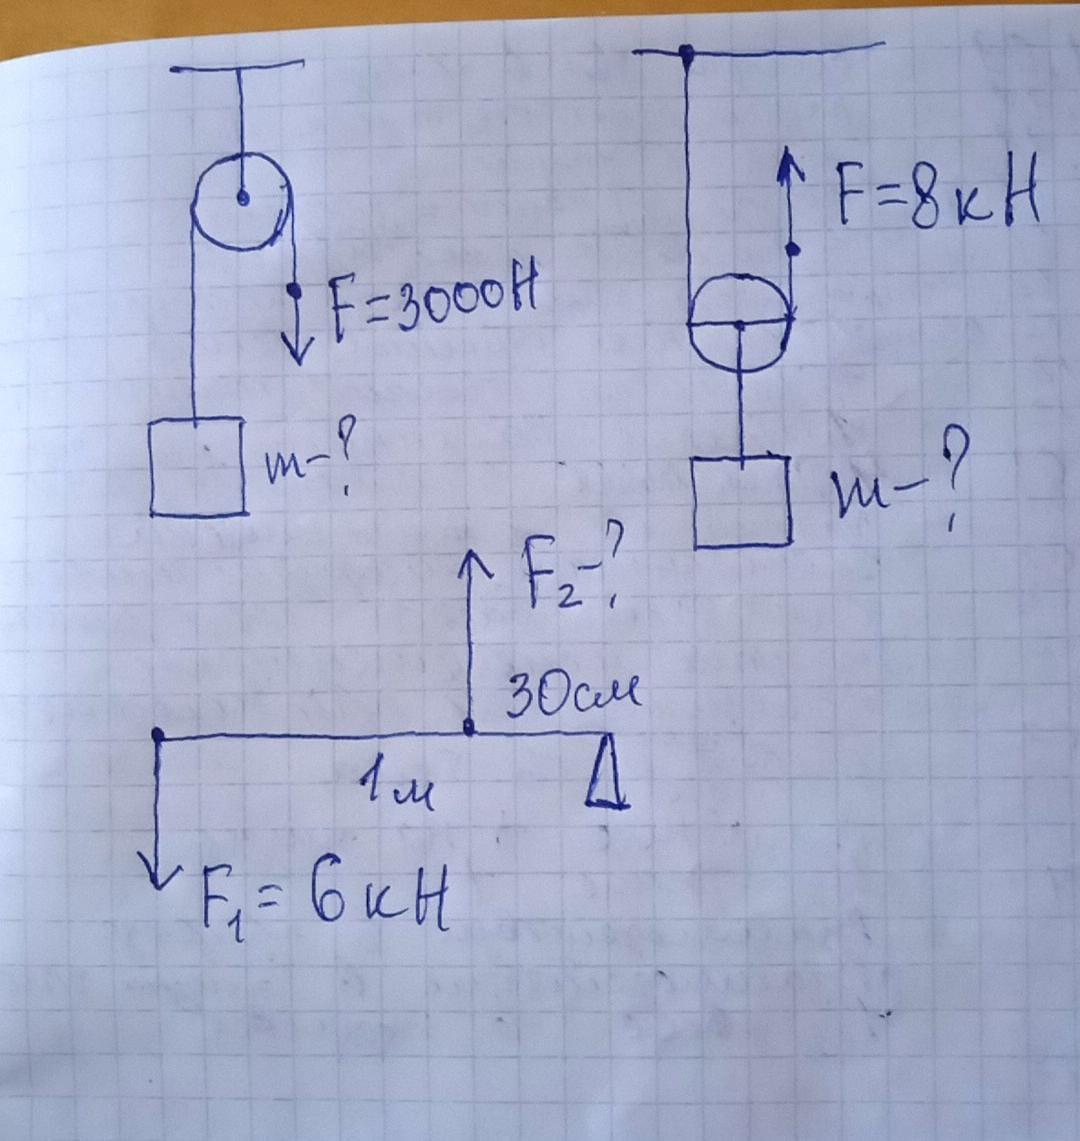 F=8кН
F=3000Н
m-?
m-?
F₂-?
30см
1м
F₁=6кН